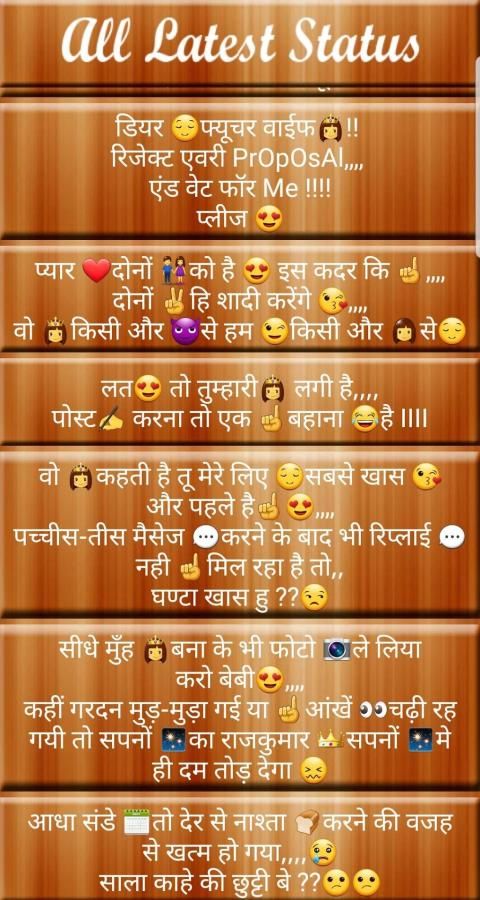 All Latest Status
डियर 😌फ्यूचर वाईफ👸!!
रिजेक्ट एवरी PrOpOsAl,,,,
एंड वेट फॉर Me !!!!
प्लीज 😍
प्यार ❤️दोनों 👫को है 😍 इस कदर कि ☝️,,,,
दोनों ✌️हि शादी करेंगे 😘,,,,
वो 👸किसी और 😈से हम 😉किसी और 👩से😌
लत😍 तो तुम्हारी👸 लगी है,,,,
पोस्ट✍️ करना तो एक ☝️बहाना 😂है ।।।।
वो 👸कहती है तू मेरे लिए 😌सबसे खास 😘
और पहले है☝️😍,,,,
पच्चीस-तीस मैसेज 💬करने के बाद भी रिप्लाई 💬
नही ☝️मिल रहा है तो,,
घण्टा खास हु ??😒
सीधे मुँह 👸बना के भी फोटो 📷ले लिया
करो बेबी😍,,,,
कहीं गरदन मुड़-मुड़ा गई या ☝️आंखें 👀चढ़ी रह
गयी तो सपनों 🌠का राजकुमार 👑सपनों 🌠मे
ही दम तोड़ देगा 😖
आधा संडे 📅तो देर से नाश्ता 🍞करने की वजह
से खत्म हो गया,,,,😢
साला काहे की छुट्टी बे ??😕😕